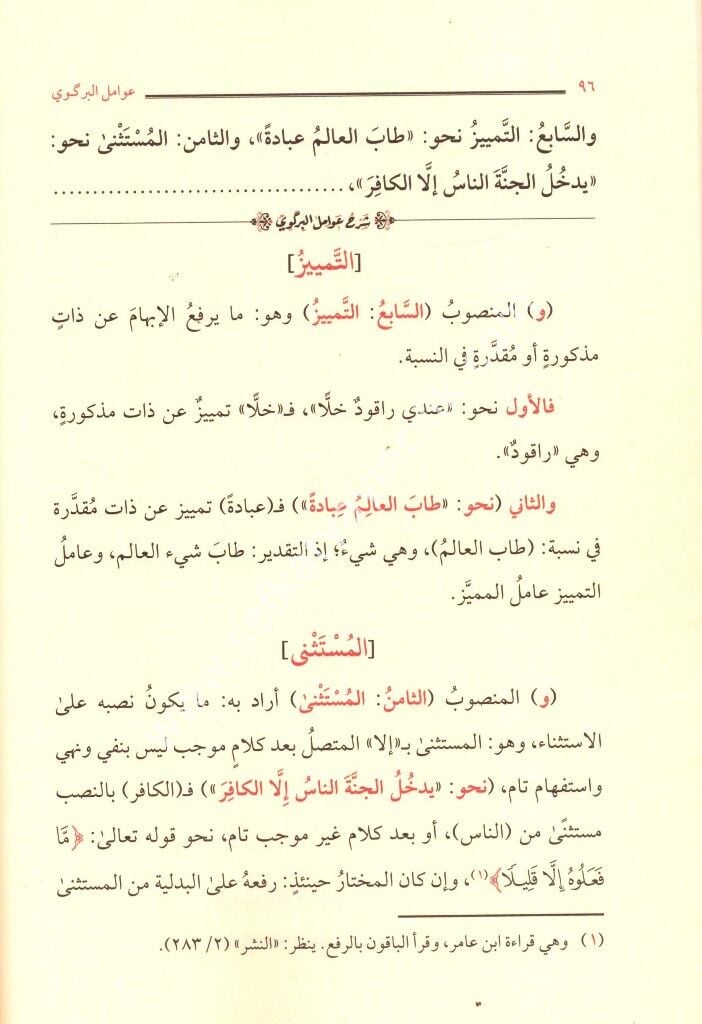 ٩٦ عوامل البرگوي
والسَّابعُ: التَّمييزُ نحو: «طابَ العالمُ عبادةً»، والثامن: المُسْتَثْنىٰ نحو:
«يدخُلُ الجنَّةَ الناسُ إلَّا الكافِرَ»، ......................................
شرح عوامل البرگوي
[التَّمييزُ]
(و) المنصوبُ (السَّابعُ: التَّمييزُ) وهو: ما يرفعُ الإبهامَ عن ذاتٍ
مذكورةٍ أو مُقدَّرةٍ في النسبة.
فالأول نحو: «عندي راقودٌ خلًّا»، فـ«خلًّا» تمييزٌ عن ذات مذكورة،
وهي «راقودٌ».
والثاني (نحو: «طابَ العالِمُ عِبادةً») فـ(عبادةً) تمييز عن ذات مُقدَّرة
في نسبة: (طاب العالمُ)، وهي شيءٌ؛ إذ التقدير: طابَ شيء العالم، وعاملُ
التمييز عاملُ المميَّز.
[المُسْتَثْنى]
(و) المنصوبُ (الثامنُ: المُسْتَثْنىٰ) أراد به: ما يكونُ نصبه علىٰ
الاستثناء، وهو: المستثنىٰ بـ«إلا» المتصلُ بعد كلامٍ موجب ليس بنفي ونهي
واستفهام تام، (نحو: «يدخُلُ الجنَّةَ الناسُ إِلَّا الكافِرَ») فـ(الكافر) بالنصب
مستثنًىٰ من (الناس)، أو بعد كلام غير موجب تام، نحو قوله تعالىٰ: ﴿مَّا
فَعَلُوهُ إِلَّا قَلِيلًا﴾(١)، وإن كان المختارُ حينئذٍ: رفعهُ علىٰ البدلية من المستثنىٰ
(١) وهي قراءة ابن عامر، وقرأ الباقون بالرفع. ينظر: «النشر» (٢/ ٢٨٣).